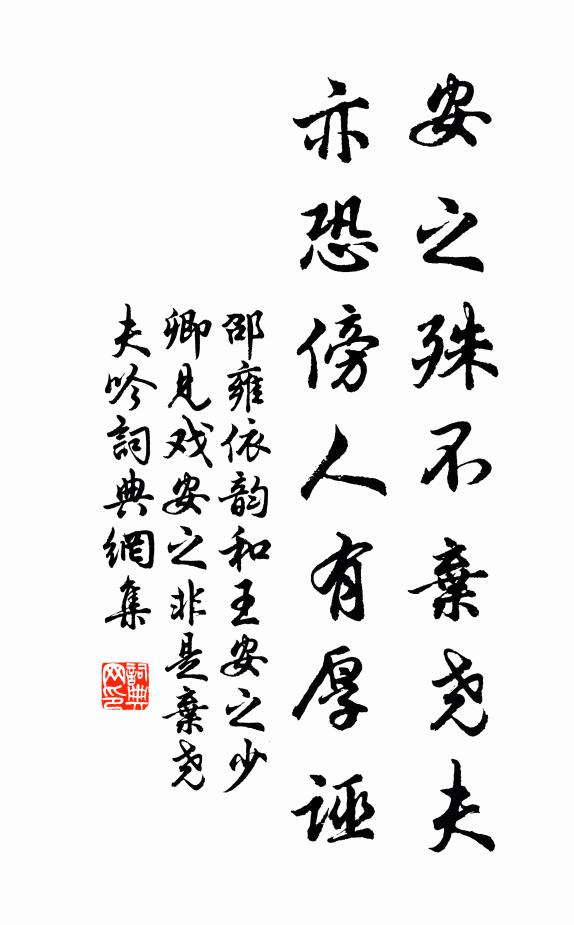 安之殊不棄尧夫
亦恐傍人有厚誣
邵雍依韵和王安之少
卿見戏安之非是棄尧
夫吟詞典網集
詞典
网印